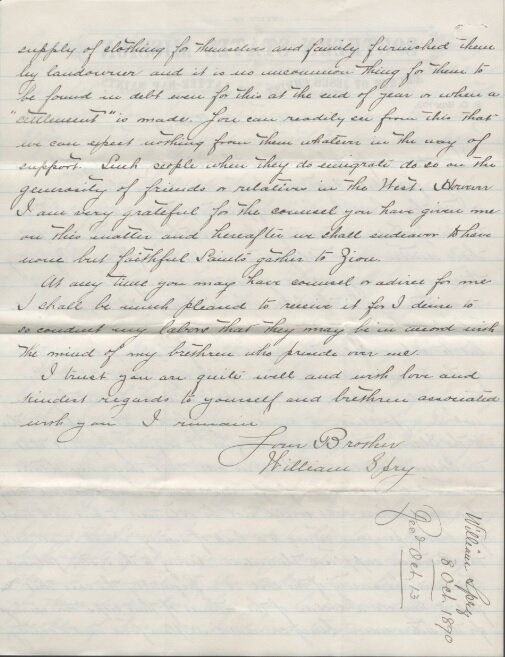 supply of clothing for themselves and family furnished them
by landowner and it is no uncommon thing for them to
be found in debt even for this at the end of year or when a
"settlement" is made. You can readily see from this that
we can expect nothing from them whatever in the way of
support. Such people when they do emigrate do so on the
generosity of friends or relatives in the West. However
I am very grateful for the counsel you have given me
on this matter and hereafter we shall endeavor to have
none but faithful Saints gather to Zion.
At any time you may have counsel or advice for me
I shall be much pleased to receive it for I desire to
so conduct my labors that they may be in accord with
the mind of my brethren who preside over me.
I trust you are quite well and with love and
kindest regards to yourself and brethren associated
with you I remain
Your Brother
William Spry
William Spry
8 Oct. 1890
Recd Oct. 13